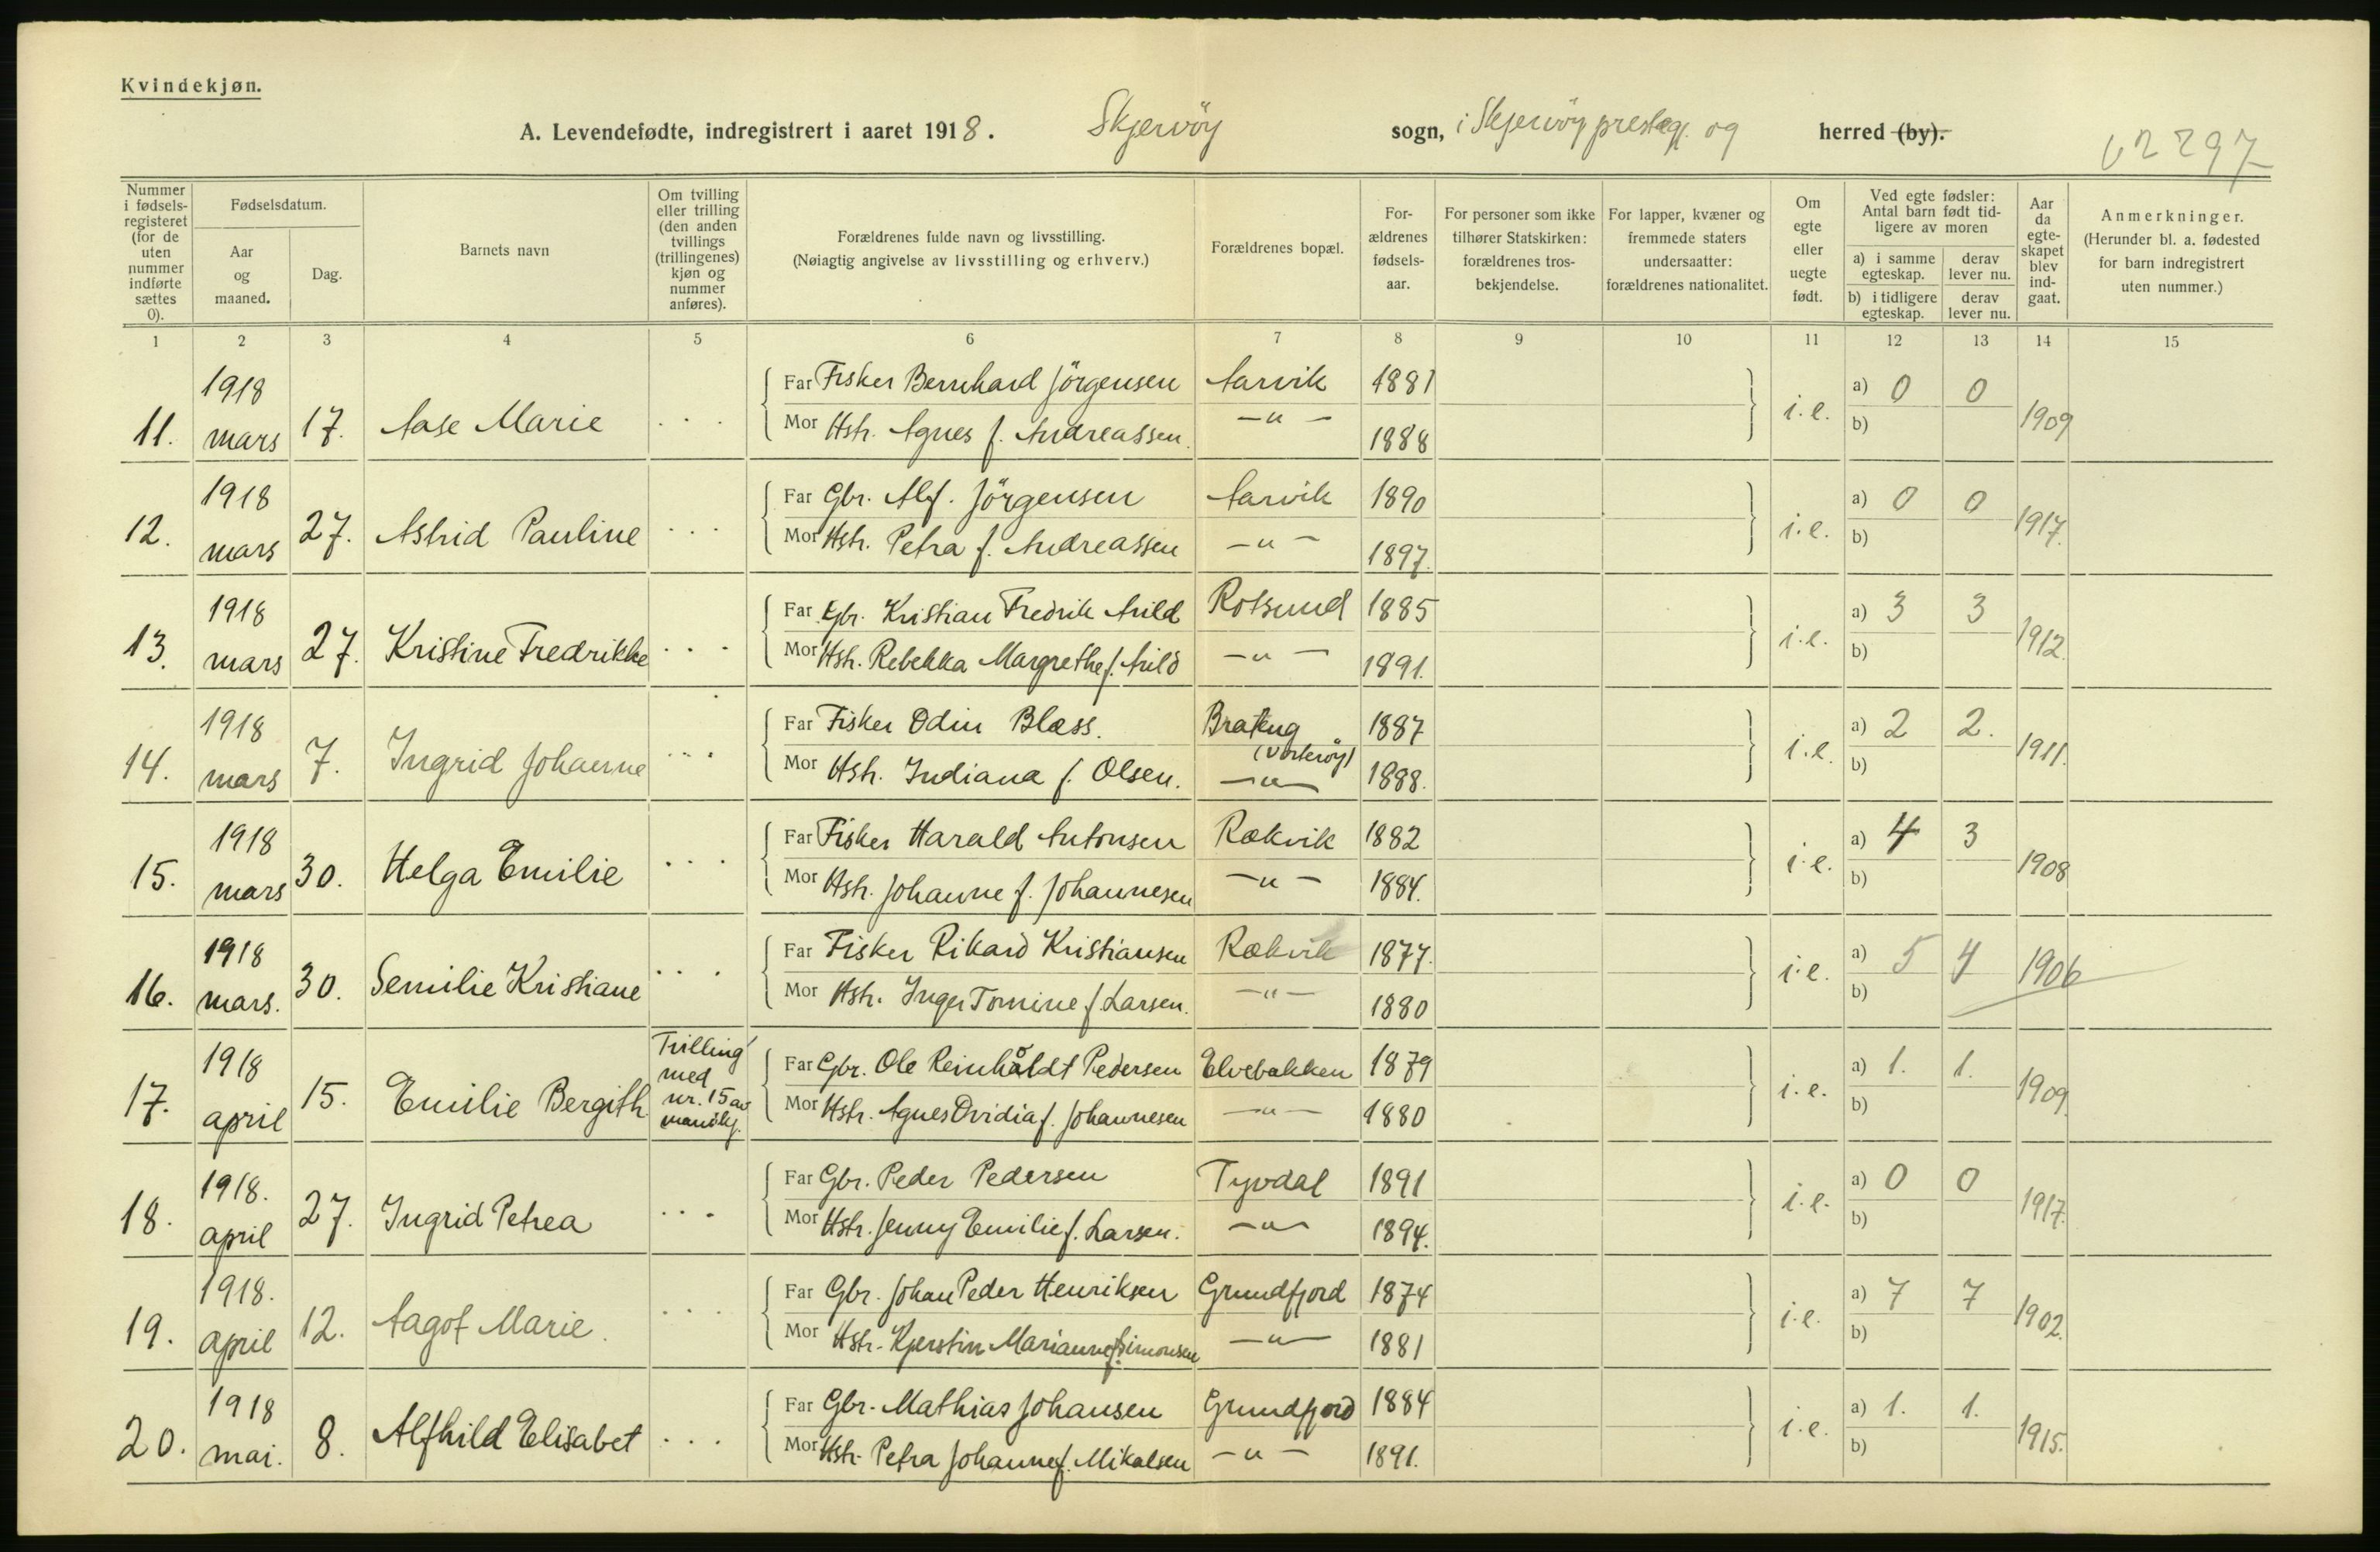 Kvindekjøn.
A. Levendefødte, indregistrert i aaret 1918. Skjervöy sogn, i Skjervöy prestegj. og herred (by).
Nummer i fødsels-registeret (for de uten nummer indførte sættes 0).
Fødselsdatum.
Aar og maaned.
Dag.
Barnets navn
Om tvilling eller trilling (den anden tvillings (trillingenes) kjøn og nummer anføres).
Forældrenes fulde navn og livsstilling.
(Nøiagtig angivelse av livsstilling og erhverv.)
Forældrenes bopæl.
For-ældrenes fødsels-aar.
For personer som ikke tilhører Statskirken: forældrenes tros-bekjendelse.
For lapper, kvæner og fremmede staters undersaatter: forældrenes nationalitet.
Om egte eller uegte født.
Ved egte fødsler: Antal barn født tid-ligere av moren
a) i samme egteskap. derav lever nu.
b) i tidligere egteskap. derav lever nu.
Aar da egte-skapet blev ind-gaat.
Anmerkninger.
(Herunder bl. a. fødested for barn indregistrert uten nummer.)
1 2 3 4 5 6 7 8 9 10 11 12 13 14 15
11. 1918 mars 17. Aase Marie . . . Far Fisker Bernhard Jörgensen Aarvik 1881 i.e. a) 0 0 1909
Mor Hstr. Agnes f. Andreassen. —„— 1888 b)
12. 1918 mars 27. Astrid Pauline . . . Far Gbr. Alf. Jörgensen Aarvik 1890 i.e. a) 0 0 1917.
Mor Hstr. Petra f. Andreassen —„— 1897. b)
13. 1918 mars 27. Kristine Fredrikke . . . Far Gbr. Kristian Fredrik Arild Rotsund 1885 i.e. a) 3 3 1912.
Mor Hstr. Rebekka Margrethe f. Arild —„— 1891. b)
14. 1918 mars 7. Ingrid Johanne . . . Far Fisker Odin Blæss. Brateng (Vorteröy) 1887 i.e. a) 2 2. 1911.
Mor Hstr. Indiana f. Olsen. —„— 1888. b)
15. 1918 mars 30. Helga Emilie . . . Far Fisker Harald Antonsen Rækvik 1882 i.e. a) 4 3 1908
Mor Hstr. Johanne f. Johannesen —„— 1884. b)
16. 1918 mars. 30. Semilie Kristiane . . . Far Fisker Rikard Kristiansen Rækvik 1877. i.e. a) 5 4 1906
Mor Hstr. Inger Tomine f. Larsen. —„— 1880 b)
17. 1918 april 15. Emilie Bergith Tvilling med nr. 15 av mandkj. Far Gbr. Ole Reinholdt Pedersen Elvebakken 1879 i.e. a) 1. 1. 1909
Mor Hstr. Agnes Ovidia f. Johannesen —„— 1880 b)
18. 1918. april 27. Ingrid Petrea . . . Far Gbr. Peder Pedersen Tyvdal 1891 i.e. a) 0 0 1917.
Mor Hstr. Jenny Emilie f. Larsen. —„— 1894. b)
19. 1918. april 12. Aagot Marie. . . . Far Gbr. Johan Peder Henriksen Grundfjord 1874 i.e. a) 7 7 1902.
Mor Hstr. Kjerstin Marianne f. Simonsen —„— 1881 b)
20. 1918 mai. 8. Alfhild Elisabet . . . Far Gbr. Mathias Johansen Grundfjord 1884 i.e. a) 1. 1. 1915.
Mor Hstr. Petra Johanne f. Mikalsen —„— 1891. b)